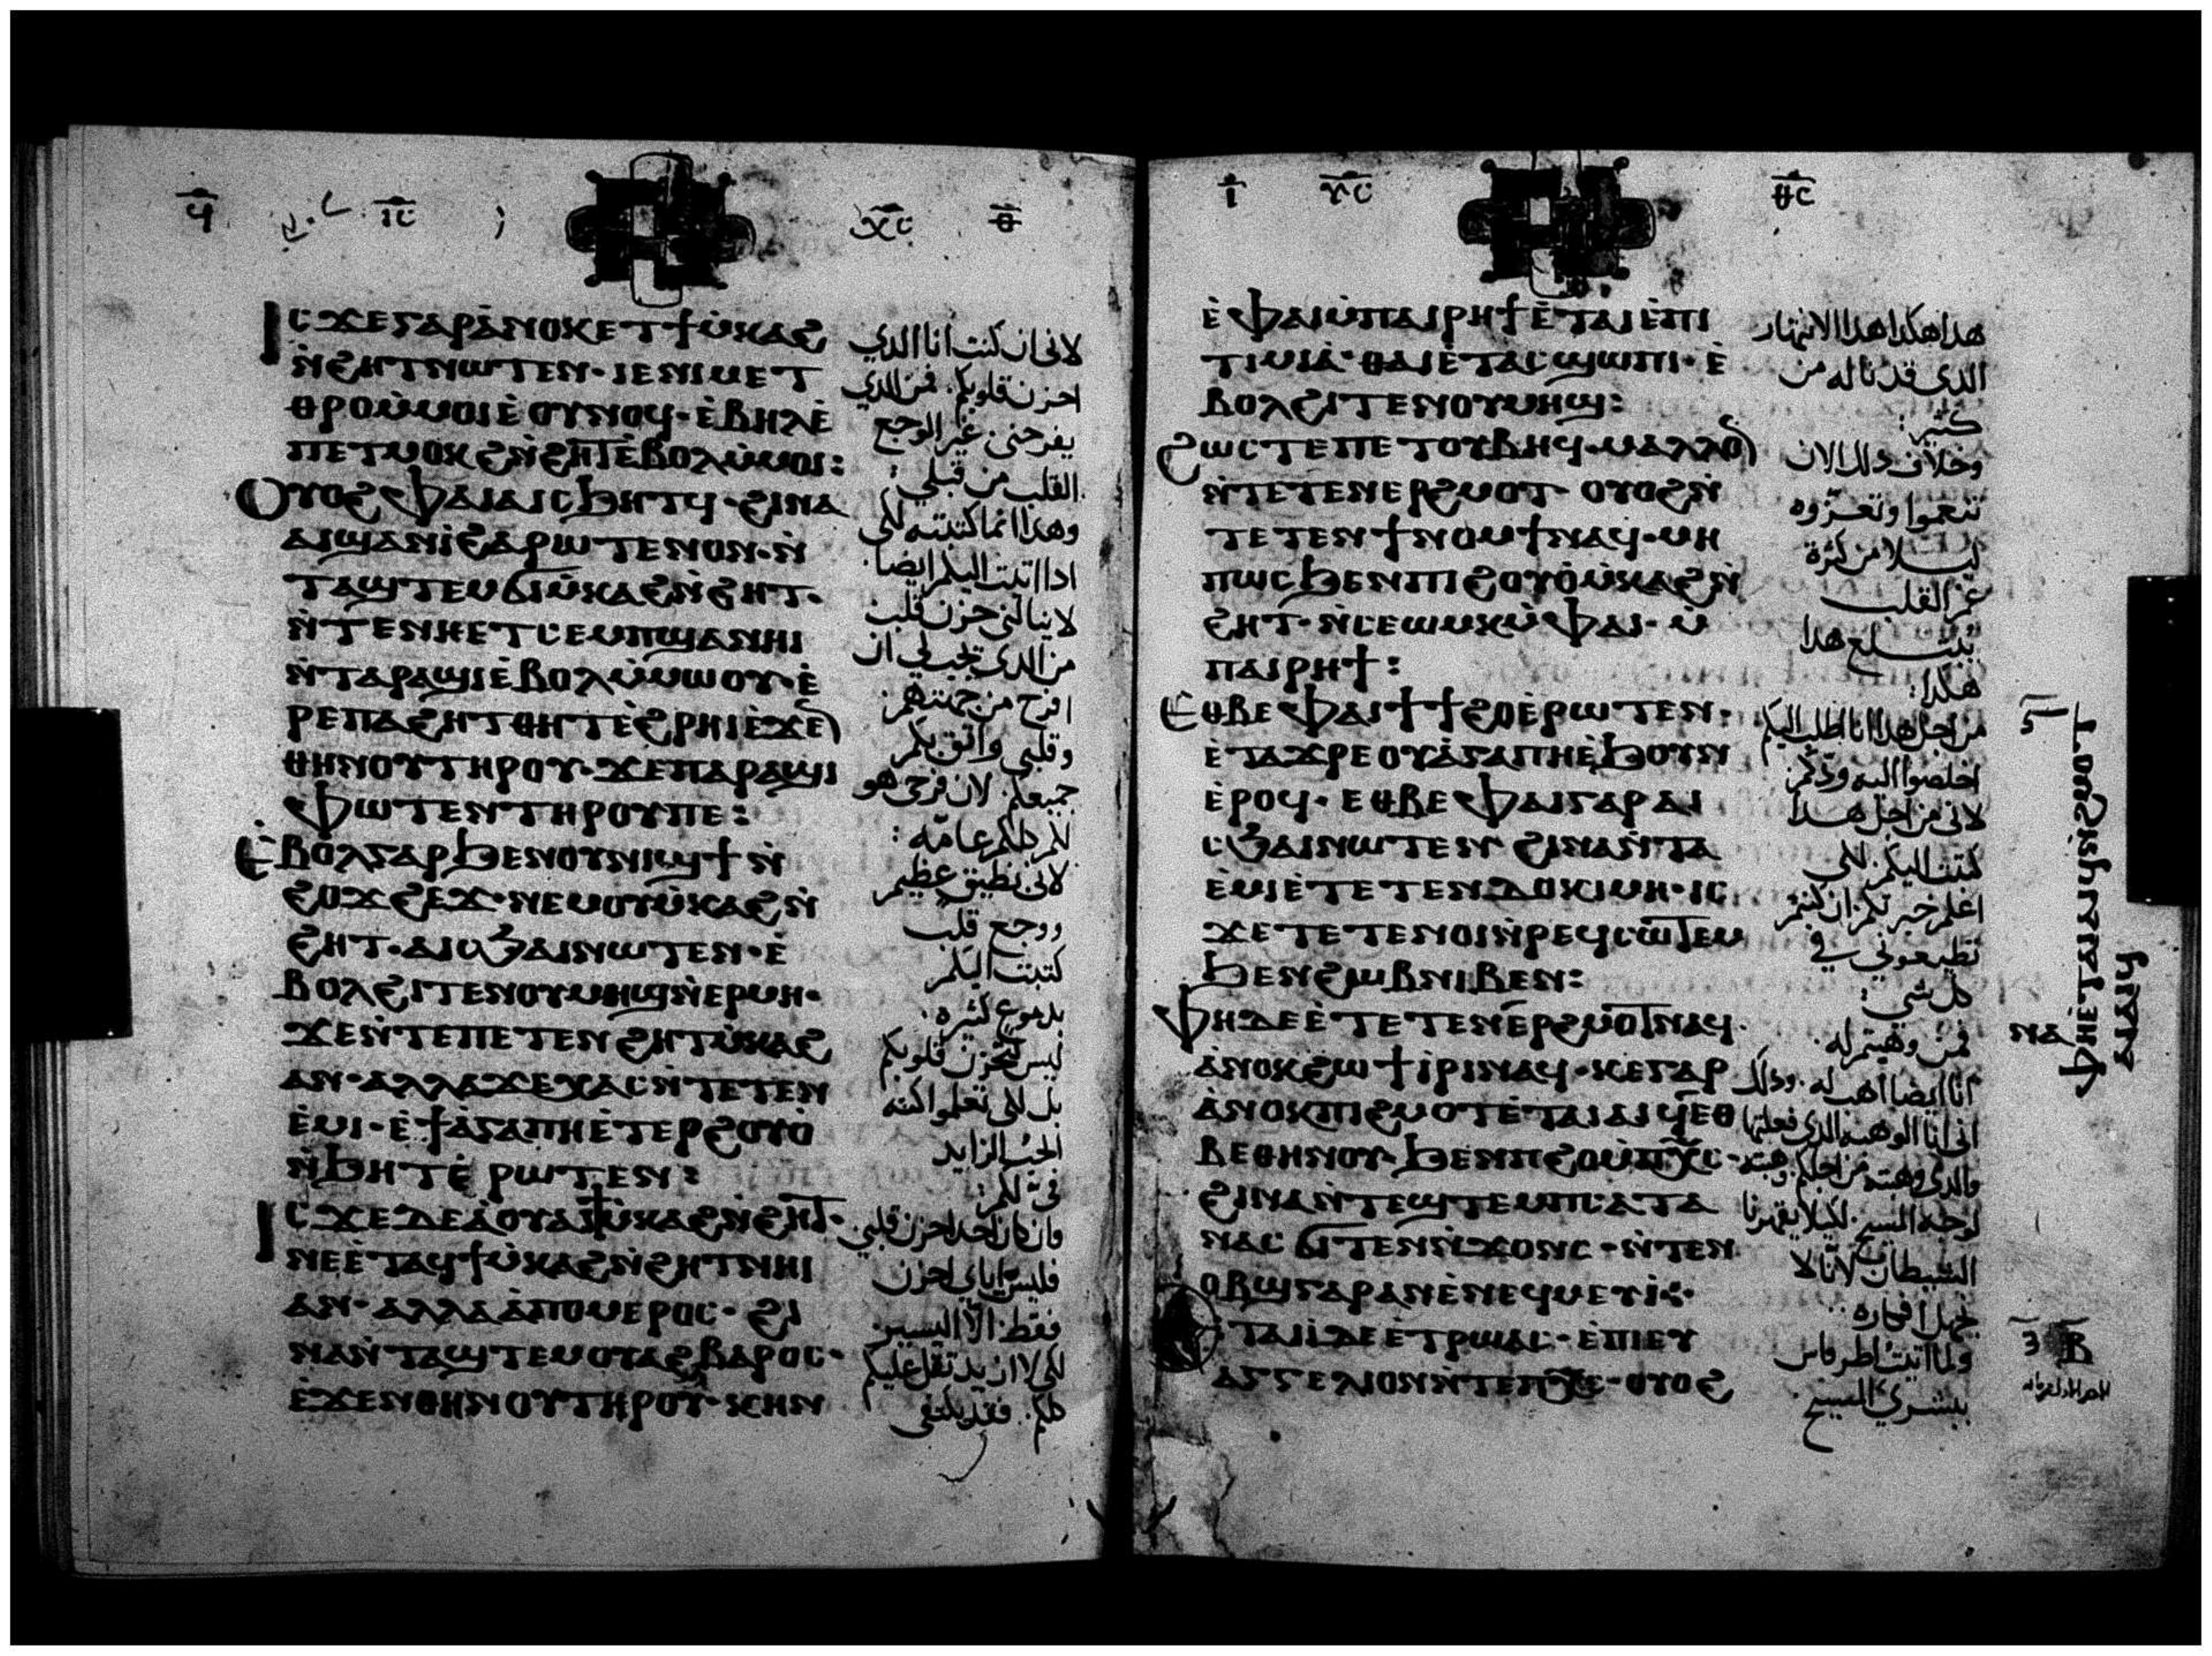 ϥ ⲓⲥ ⲭⲥ ⲑ
Ⲓⲥϫⲉⲅⲁⲣⲁ̀ⲛⲟⲕⲉⲧϯⲙ̀ⲕⲁϩ
ⲛ̀ϩⲏⲧⲛⲱⲧⲉⲛ· ⲓⲉⲛⲓⲙⲉⲧ
ⲑⲣⲟⲙ̀ⲙⲟⲓⲉ̀ⲟⲩⲛⲟϥ· ⲉ̀ⲃⲏⲗⲉ̀
ⲡⲉⲧⲙⲟⲕϩⲛ̀ϩⲏⲧⲉ̀ⲃⲟⲗⲙ̀ⲙⲟⲓ:
Ⲟⲩⲟϩⲫⲁⲓⲁⲓⲥϧⲏⲧϥ· ϩⲓⲛⲁ
ⲁⲓϣⲁⲛⲓ̀ϩⲁⲣⲱⲧⲉⲛⲟⲛ· ⲛ̀
ⲧⲁϣⲧⲉⲙϭⲓⲙ̀ⲕⲁϩⲛ̀ϩⲏⲧ·
ⲛ̀ⲧⲉⲛⲛⲏⲉⲧⲥⲉⲙⲡϣⲁⲛⲏⲓ
ⲛ̀ⲧⲁⲣⲁϣⲓⲉ̀ⲃⲟⲗⲙ̀ⲙⲱⲟⲩ· ⲉ̀
ⲣⲉⲡⲁϩⲏⲧⲑⲏⲧⲉ̀ϩⲣⲏⲓⲉ̀ϫⲉ̅
ⲑⲏⲛⲟⲩⲧⲏⲣⲟⲩ· ϫⲉⲡⲁⲣⲁϣⲓ
ⲫⲱⲧⲉⲛⲧⲏⲣⲟⲩⲡⲉ:
Ⲉ̀ⲃⲟⲗⲅⲁⲣϧⲉⲛⲟⲩⲛⲓϣϯⲛ̀
ϩⲟϫϩⲉϫ· ⲛⲉⲙⲟⲩⲙ̀ⲕⲁϩⲛ̀
ϩⲏⲧ· ⲁⲓⲥϧⲁⲓⲛⲱⲧⲉⲛ· ⲉ̀
ⲃⲟⲗϩⲓⲧⲉⲛⲟⲩⲙⲏϣⲛ̀ⲉⲣⲙⲏ·
ϫⲉⲛ̀ⲧⲉⲡⲉⲧⲉⲛϩⲏⲧⲙ̀ⲕⲁϩ
ⲁⲛ· ⲁⲗⲗⲁϫⲉⲭⲁⲥⲛ̀ⲧⲉⲧⲉⲛ
ⲉ̀ⲙⲓ· ⲉ̀ϯⲁ̀ⲅⲁⲡⲏⲉ̀ⲧⲉⲣϩⲟⲩⲟ̀
ⲛ̀ϧⲏⲧⲉ̀ⲣⲱⲧⲉⲛ:
Ⲓⲥϫⲉⲇⲉⲁ̀ⲟⲩⲁⲓϯⲙ̀ⲕⲁϩⲛ̀ϩⲏⲧ·
ⲛⲉⲉ̀ⲧⲁϥϯⲙ̀ⲕⲁϩⲛ̀ϩⲏⲧⲛⲏⲓ
ⲁⲛ· ⲁⲗⲗⲁⲁ̀ⲡⲟⲙⲉⲣⲟⲥ· ϩⲓ
ⲛⲁⲛ̀ⲧⲁϣⲧⲉⲙⲟⲩⲁϩⲃⲁⲣⲟⲥ·
ⲉ̀ϫⲉⲛⲑⲏⲛⲟⲩⲧⲏⲣⲟⲩ· ⲕⲏⲛ
لانى ان كنت انا الدي
احزنت قلوبكم. فمن الدي
يفرحنى غير الوجع
القلب من قبلي:
وهدا انما كتبته لكي
ادا اتيت اليكم ايضا.
لا ينالنى حزن قلب
من الدى يجب لي ان
افرح من جهتهم
وقلبي واتق بكم
جميعكم. لان فرحى هو
لكم كلكم عامه:
لانى بظيق عظيم
ووجع قلب
كتبت اليكم
بدموع كثيره.
ليس لتحزن قلوبكم
بل لكى تعلموا كنه
الحب الزايد
فى لكم:
فان كان احد احزن قلبي
فليس اياى احزن
فقط الا اليسير
لكى لا ازيد تقل عليكم
كلكم. فقد يكتفى
ⲓ ⲩⲥ ⲑⲥ
ⲉ̀ⲫⲁⲓⲙ̀ⲡⲁⲓⲣⲏϯⲉ̀ⲧⲁⲓⲉ̀ⲡⲓ
ⲧⲓⲙⲓⲁ̀· ⲑⲁⲓⲉ̀ⲧⲁⲥϣⲱⲡⲓ· ⲉ̀
ⲃⲟⲗϩⲓⲧⲉⲛⲟⲩⲙⲏϣ:
Ϩⲱⲥⲧⲉⲡⲉⲧⲟⲩⲃⲏϥ· ⲙⲁⲗⲗⲟ̅
ⲛ̀ⲧⲉⲧⲉⲛⲉⲣϩⲙⲟⲧ· ⲟⲩⲟϩⲛ̀
ⲧⲉⲧⲉⲛϯⲛⲟⲙϯⲛⲁϥ· ⲙⲏ
ⲡⲱⲥϧⲉⲛⲡⲓϩⲟⲩⲟ̀ⲙ̀ⲕⲁϩⲛ̀
ϩⲏⲧ· ⲛ̀ⲥⲉⲱⲙⲕⲙ̀ⲫⲁⲓ· ⲙ̀
ⲡⲁⲓⲣⲏϯ:
Ⲉⲑⲃⲉⲫⲁⲓϯϯϩⲟⲉ̀ⲣⲱⲧⲉⲛ·
ⲉ̀ⲧⲁϫⲣⲉⲟⲩⲁ̀ⲅⲁⲡⲏⲉ̀ϧⲟⲩⲛ
ⲉ̀ⲣⲟϥ· ⲉⲑⲃⲉⲫⲁⲓⲅⲁⲣⲁⲓ
ⲥϧⲁⲓⲛⲱⲧⲉⲛ ϩⲓⲛⲁⲛ̀ⲧⲁ
ⲉ̀ⲙⲓⲉ̀ⲧⲉⲧⲉⲛⲇⲟⲕⲓⲙⲏ· ⲓⲥ
ϫⲉⲧⲉⲧⲉⲛⲟⲓⲛ̀ⲣⲉϥⲥⲱⲧⲉⲙ
ϧⲉⲛϩⲱⲃⲛⲓⲃⲉⲛ:
Ⲫⲏⲇⲉⲉ̀ⲧⲉⲧⲉⲛⲉⲣϩⲙⲟⲧⲛⲁϥ·
ⲁ̀ⲛⲟⲕϩⲱϯⲓ̀ⲣⲓⲛⲁϥ· ⲕⲉⲅⲁⲣ
ⲁ̀ⲛⲟⲕⲡⲓϩⲙⲟⲧⲉ̀ⲧⲁⲓⲁⲓϥⲉⲑ
ⲃⲉⲑⲏⲛⲟⲩ· ϧⲉⲛⲡϩⲟⲙ̀ⲡⲭ̅ⲥ·
ϩⲓⲛⲁⲛ̀ⲧⲉϣⲧⲉⲙⲡⲥⲁⲧⲁ
ⲛⲁⲥϭⲓⲧⲉⲛⲛ̀ϫⲟⲛⲥ· ⲛ̀ⲧⲉⲛ
ⲟⲃϣⲅⲁⲣⲁⲛⲉ̀ⲛⲉϥⲙⲉⲩⲓ̀·
Ⲉⲧⲁⲓⲓ̀ⲇⲉⲉ̀ⲧⲣⲱⲁⲥ· ⲉ̀ⲡⲓⲉⲩ
ⲁⲅⲅⲉⲗⲓⲟⲛⲛ̀ⲧⲉⲡⲭⲥ· ⲟⲩⲟϩ
هدا هكدا هدا الانتهار
الدى قد ناله من
كثير:
وخلاف دلك الان
تنعموا وتعزّوه
ليلا من كثرة
غم القلب
يبتلع هدا
هكدا:
من اجل هدا انا اطلب اليكم
اخلصوا اليه ودكم
لانى من اجل هدا
كتبت اليكم لكي
اعلم خبرتكم ان كنتم
تطيعونى في
كل شي:
فمن وهبتم له.
انا ايضا اهب له. ودلك
انى انا الوهبه الدى فعلتها
لوجه المسيح. لكيلا يقهرنا
الشيطان لاننا لا
نجهل افكاره:
ولما اتيت اطرواس
ببشري المسيح
ⲛⲁ
ⲫⲏⲉ̀ⲧⲁⲓⲁⲓϥ
ⲁⲓⲁⲓϥ
Ⲃ